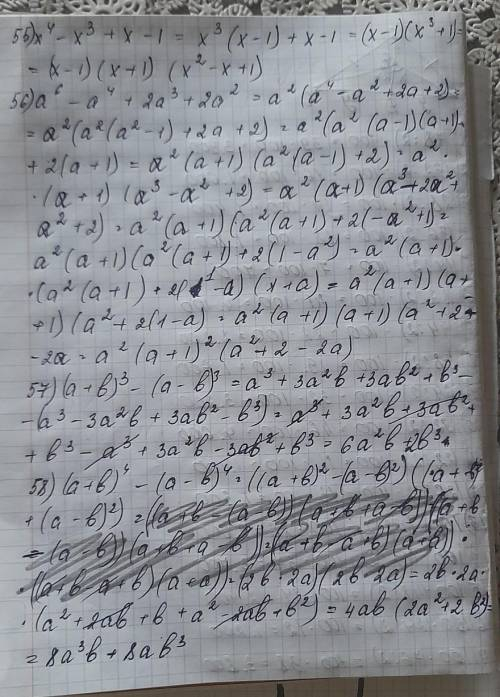 55) x⁴ - x³ + x - 1 = x³ (x-1) + x - 1 = (x-1)(x³+1)=
= (x-1)(x+1) (x² - x + 1)
56) a⁶ - a⁴ + 2a³ + 2a² = a² (a⁴ - a² + 2a + 2) =
= a² (a² (a² - 1) + 2a + 2) = a² (a² (a-1)(a+1)+
+ 2(a+1) = a² (a+1) (a² (a-1) + 2) = a² ·
· (a+1) (a³ - a² + 2) = a² (a+1) (a³ - 2a² +
a² + 2) = a² (a+1) (a² (a+1) + 2(-a²+1) =
a² (a+1) (a² (a+1) + 2(1-a²) = a² (a+1) ·
· (a² (a+1) + 2(1-a) (x+a) = a² (a+1) (a+
+1) (a² + 2(1-a) = a² (a+1) (a+1) (a² + 2-
-2a = a² (a+1)² (a² + 2 - 2a)
57) (a+b)³ - (a-b)³ = a³ + 3a²b + 3ab² + b³ -
-(a³ - 3a²b + 3ab² - b³) = a³ + 3a²b + 3ab² +
+ b³ - a³ + 3a²b - 3ab² + b³ = 6a²b + 2b³
58) (a+b)⁴ - (a-b)⁴ = ((a+b)² - (a-b)²) ((a+b)²
+ (a-b)²) =
= (2b · 2a) (2b · 2a) = 2b · 2a ·
· (a² + 2ab + b + a² - 2ab + b²) = 4ab (2a² + 2b²)=
= 8a³b + 8ab³